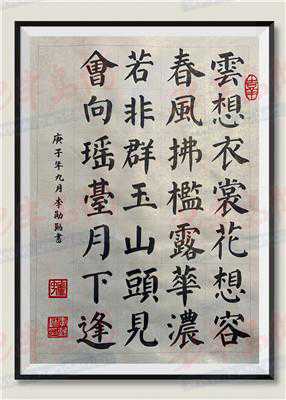 雲想衣裳花想容
春風拂檻露華濃
若非群玉山頭見
會向瑶臺月下逢
庚子年九月李勛勤書